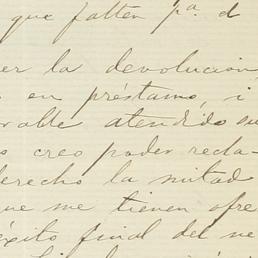 que falten pa. d
er la devolucion
s en préstamo, i
rable atendido su
s creo poder recla-
derecho la mitad
que me tienen ofre
éxito final del ne